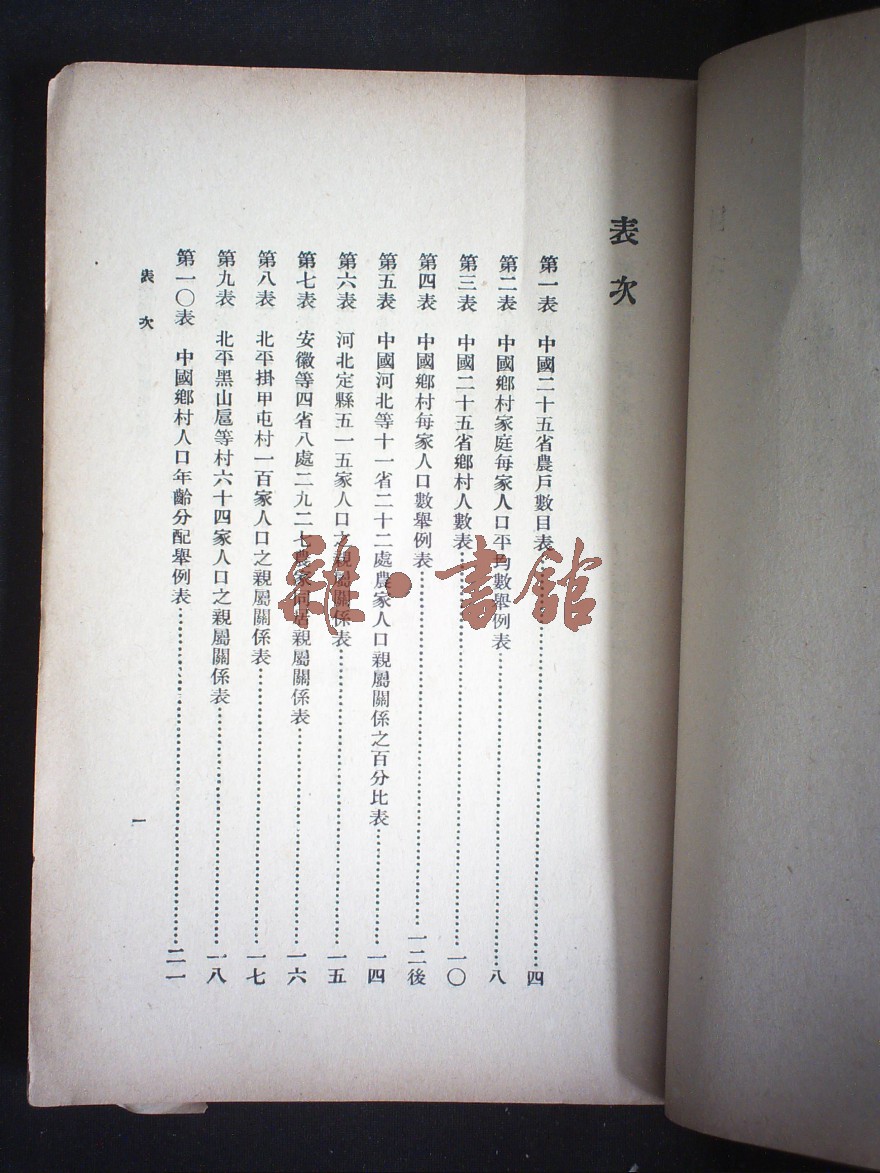 表次
第一表 中國二十五省農戶數目表⋯⋯四
第二表 中國鄉村家庭每家人口平均數舉例表⋯⋯八
第三表 中國二十五省鄉村人數表⋯⋯一〇
第四表 中國鄉村每家人口數舉例表⋯⋯一二後
第五表 中國河北等十一省二十二處農家人口親屬關係之百分比表⋯⋯一四
第六表 河北定縣五一五家人口之親屬關係表⋯⋯一五
第七表 安徽等四省八處二九二七農家同居親屬關係表⋯⋯一六
第八表 北平掛甲屯村一百家人口之親屬關係表⋯⋯一七
第九表 北平黑山扈等村六十四家人口之親屬關係表⋯⋯一八
第一〇表 中國鄉村人口年齡分配舉例表⋯⋯二一
表次
一
雜·書館